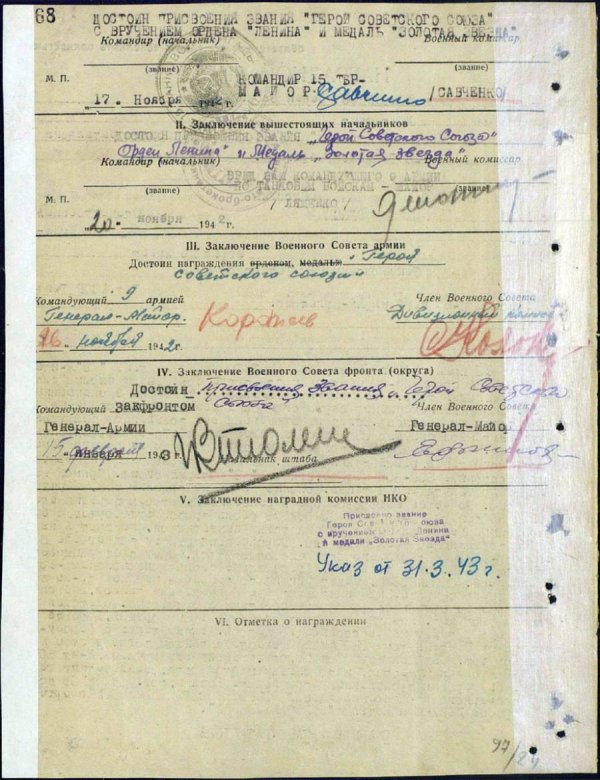 68
ДОСТОИН ПРИСВОЕНИЯ ЗВАНИЯ "ГЕРОЙ СОВЕТСКОГО СОЮЗА"
С ВРУЧЕНИЕМ ОРДЕНА "ЛЕНИНА" И МЕДАЛЬ "ЗОЛОТАЯ ЗВЕЗДА"
Командир (начальник) Военный комиссар
(звание) (звание)
КОМАНДИР 15 ТБР-
М. П. МАЙОР Савченко /САВЧЕНКО/
17. Ноября 1942 г.
II. Заключение вышестоящих начальников
ДОСТОИН ПРИСВОЕНИЯ ЗВАНИЯ „Герой Советского Союза"
Орден Ленина" и Медаль „Золотая звезда"
Командир (начальник) Военный комиссар
КОМАНДУЮЩЕГО 9 АРМИИ
(звание) ПО ТАНКОВЫМ ВОЙСКАМ - (звание)
М. П. /ЛЯШЕНКО/
20 ноября 1942 г.
III. Заключение Военного Совета армии
Достоин награждения орденом, медалью „Герой
Советского союза"
Командующий 9 армией Член Военного Совета
Генерал-Майор. Коротеев Дивизионный
16 ноября 1942 г.
IV. Заключение Военного Совета фронта (округа)
Достоин присвоения звания „Герой Советского
Союза"
Командующий Закфронтом Член Военного Совета
Генерал-Армии Генерал-Майор
15 января 3 г. Начальник штаба
V. Заключение наградной комиссии НКО
Присвоено звание
Героя Советского Союза
с вручением Ордена Ленина
и медали „Золотая Звезда"
Указ от 31.3.43 г.
VI. Отметка о награждении
97/